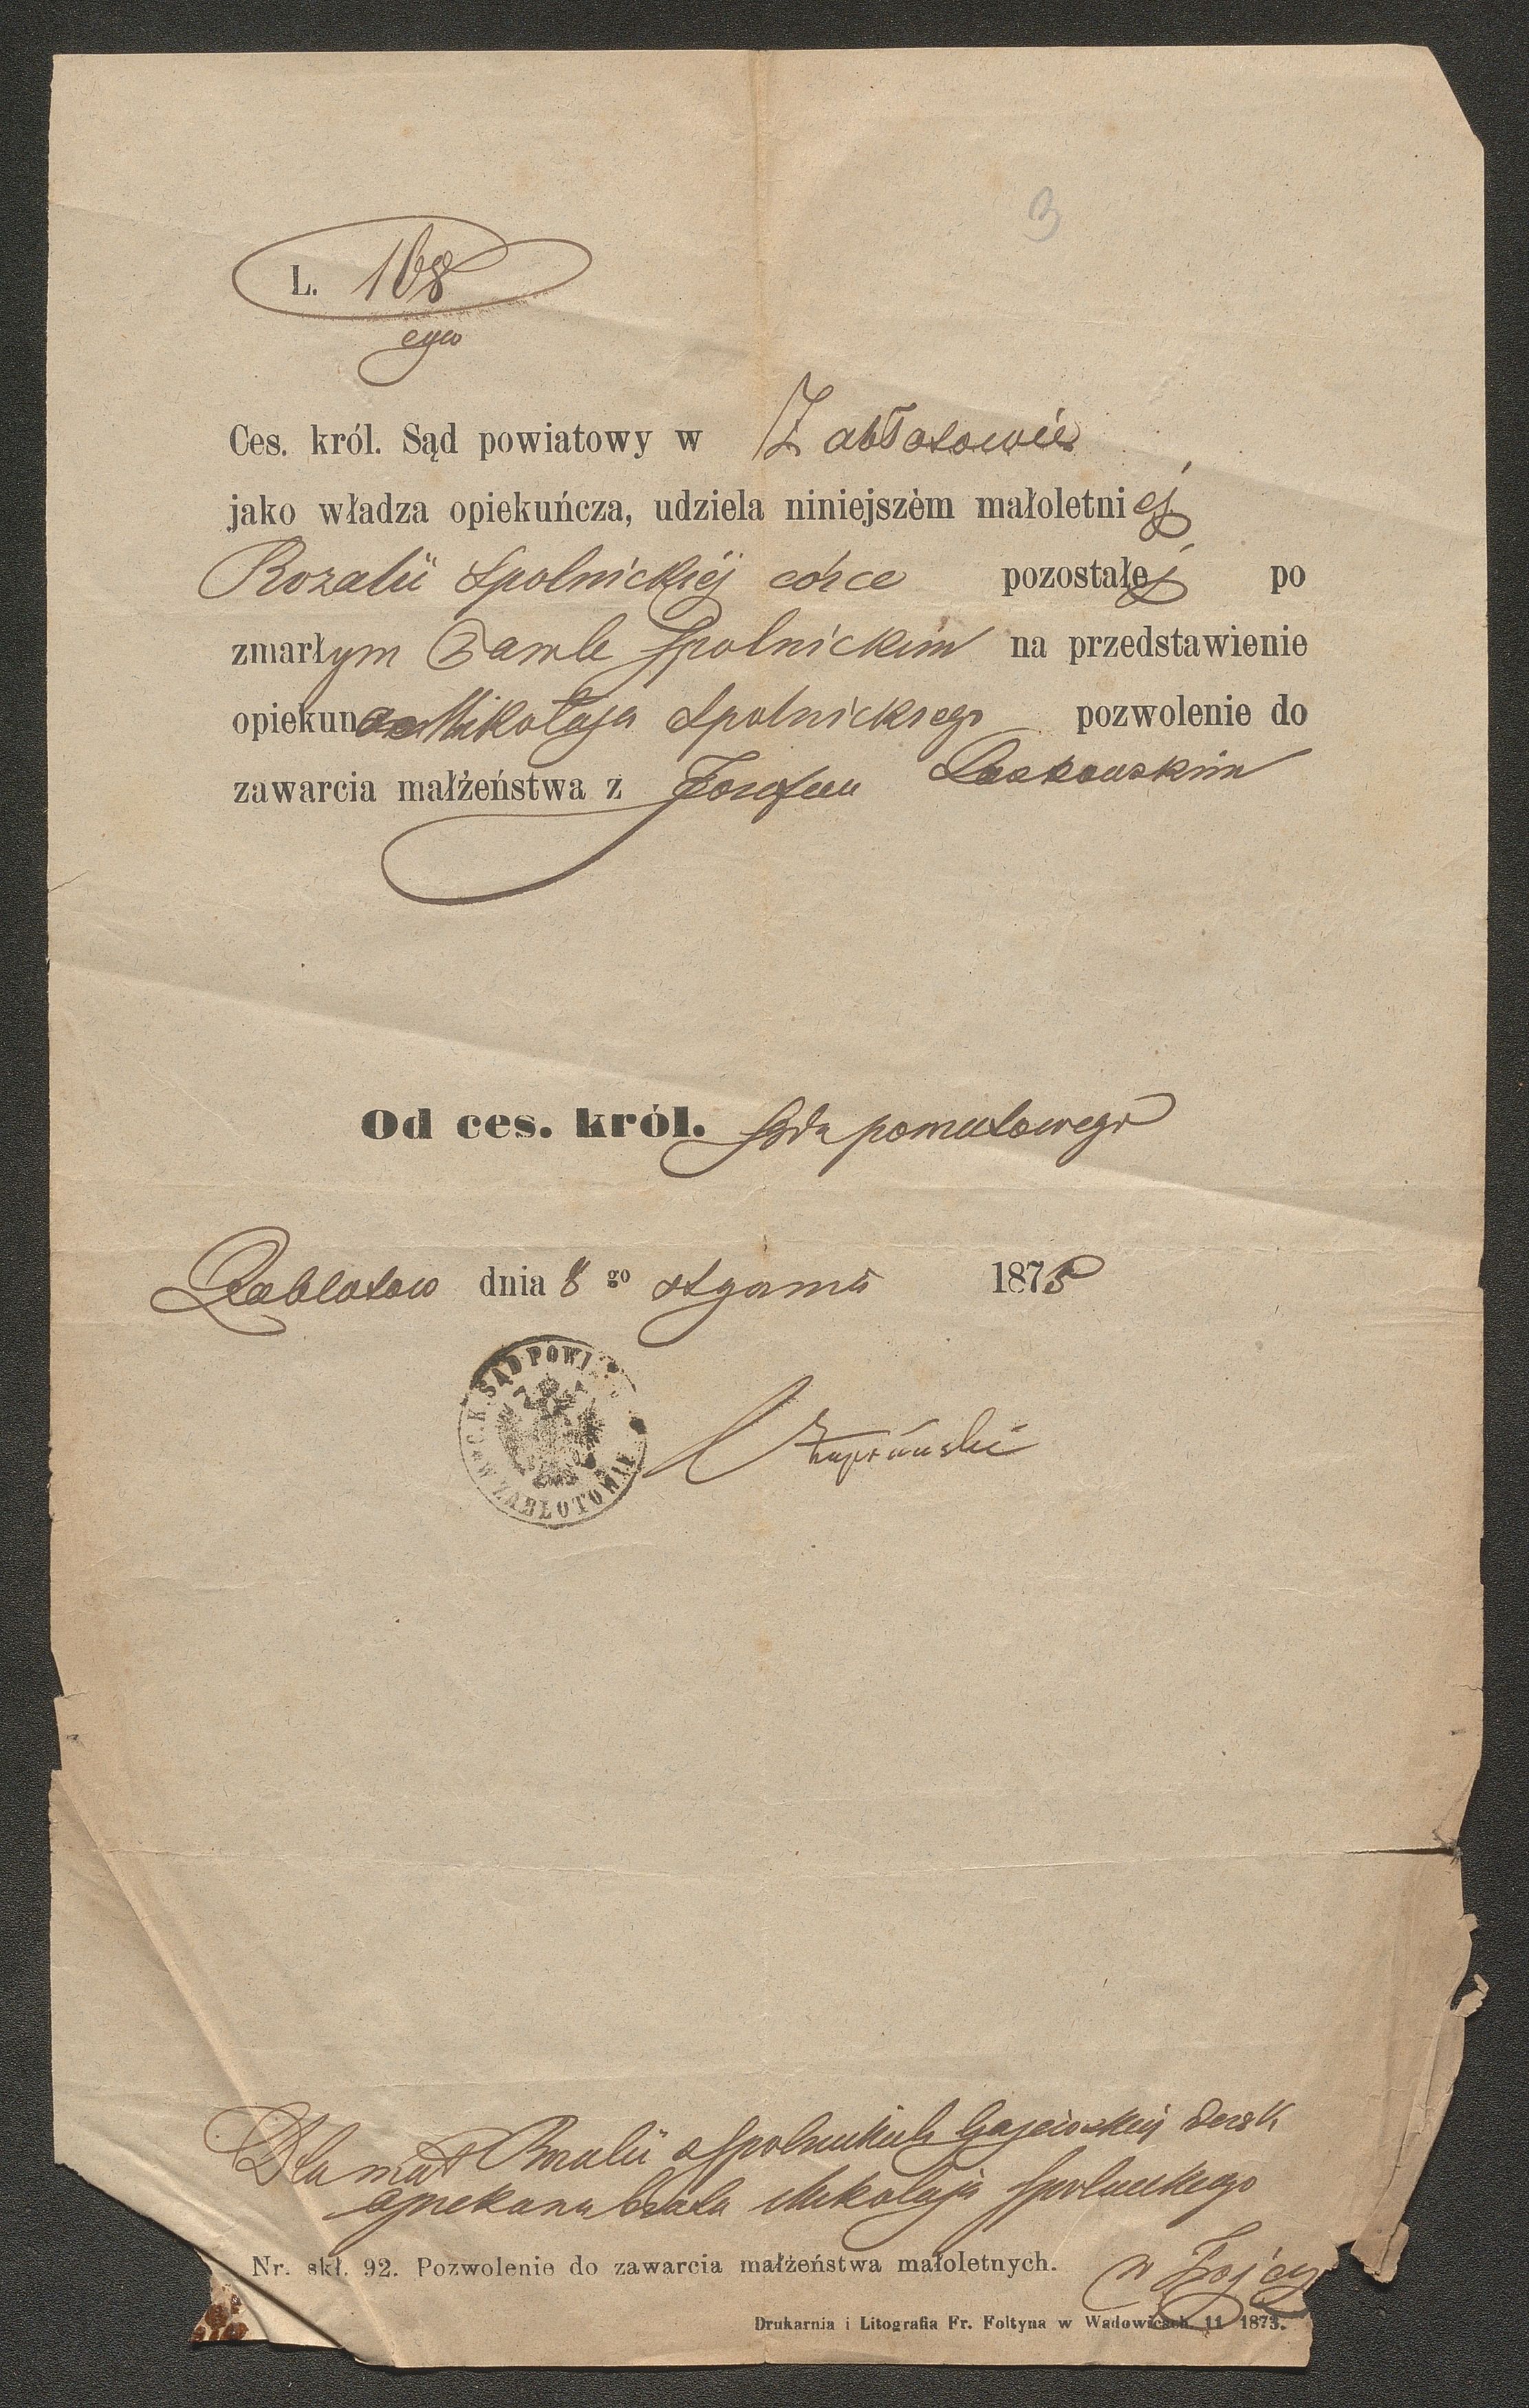 3
L. 168
cyw
Ces. król. Sąd powiatowy w Zabłotowie
jako władza opiekuńcza, udziela niniejszèm małoletniej
Rozalii Spolnickiéj córce pozostałej po
zmarłym Pawle Spolnickim na przedstawienie
opiekuna Mikołaja Spolnickiego pozwolenie do
zawarcia małżeństwa z Józefem Laskowskim
Od ces. król. Sądu powiatowego
Zabłotow dnia 8 go stycznia 1875
C. K. SĄD POWI
W ZABŁOTOWIE
Dla mał Rozalii Spolnickich do rąk
opiekuna brata Mikołaja Spolnickiego
Nr. skł. 92. Pozwolenie do zawarcia małżeństwa małoletnych. w
Drukarnia i Litografia Fr. Foltyna w Wadowicach. 11 1873.